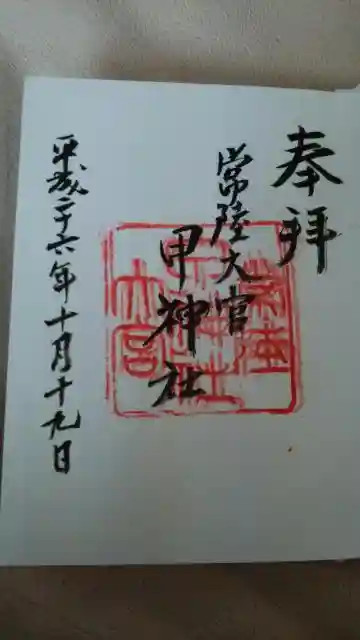 奉拝
常陸大宮
甲神社
平成二十六年十月十九日